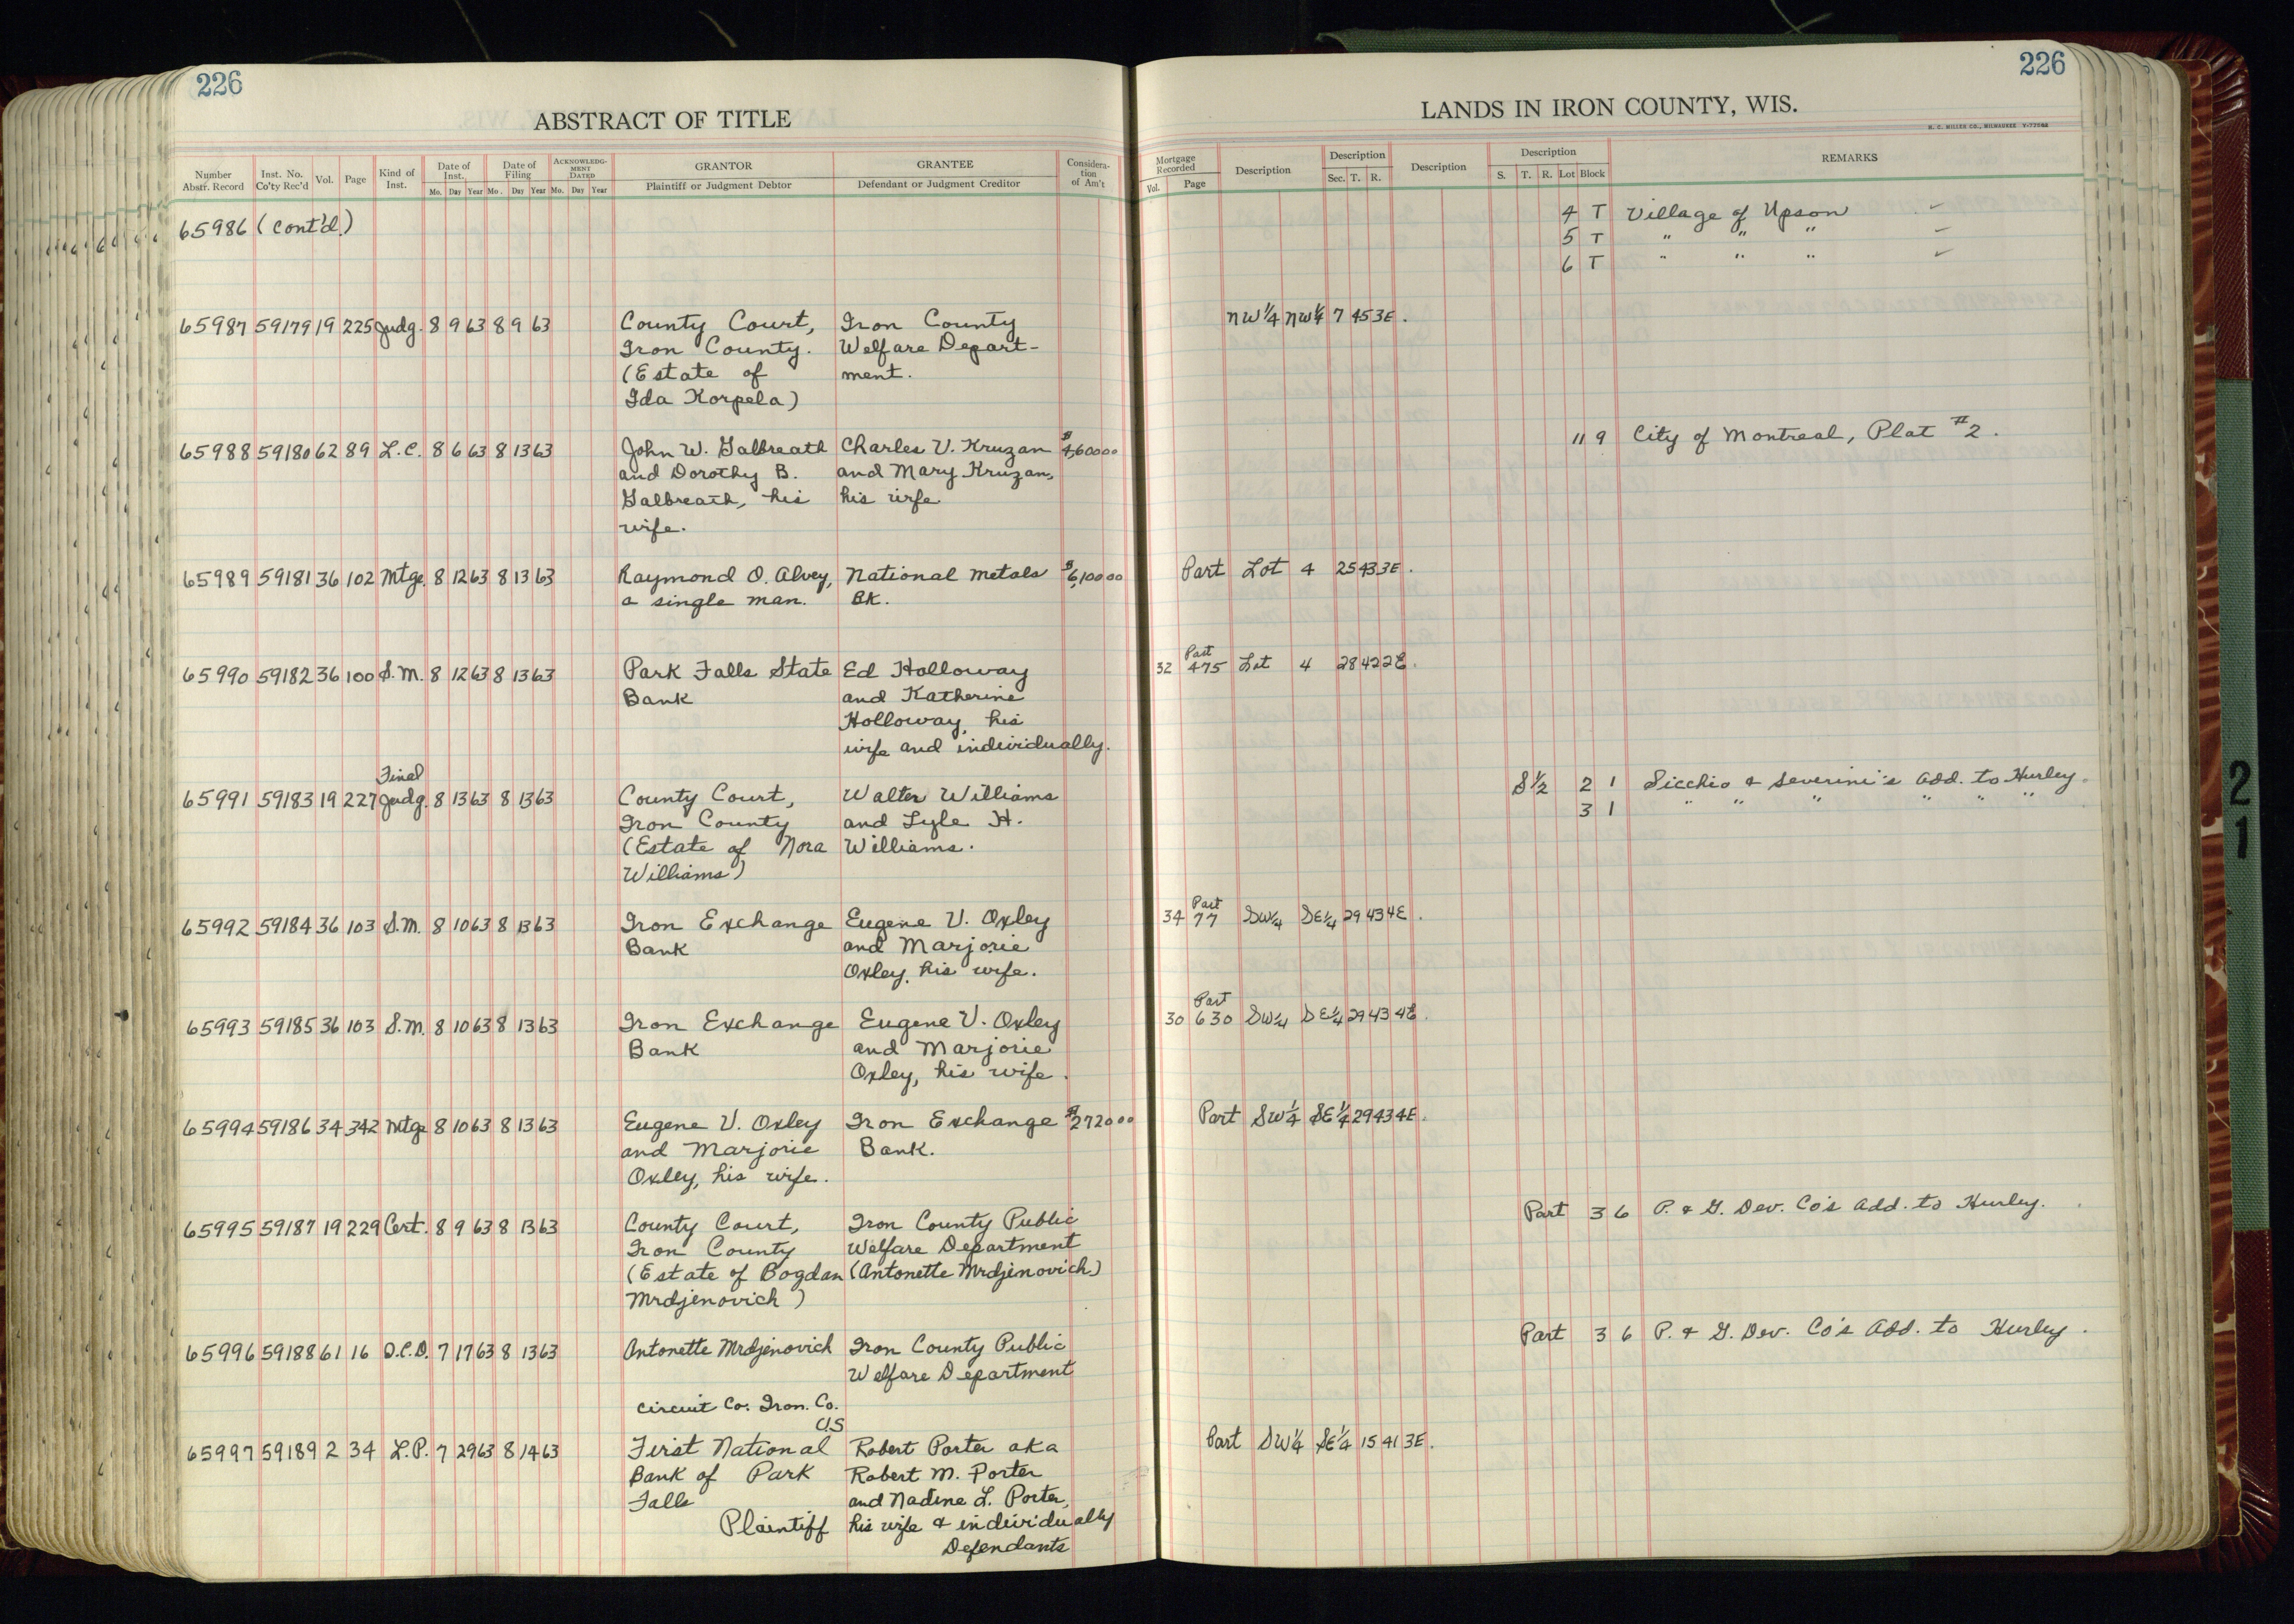 226
226
ABSTRACT OF TITLE
LANDS IN IRON COUNTY, WIS.
H. C. MILLER CO., MILWAUKEE
Number Abstr. Record Inst. No. Co'ty Rec'd Vol. Page Kind of Inst. Date of Inst. Mo. Day Year Date of Filing Mo. Day Year ACKNOWLEDGMENT DATED Mo. Day Year GRANTOR Plaintiff or Judgment Debtor GRANTEE Defendant or Judgment Creditor Consideration of Am't
Mortgage Recorded Vol. Page Description Description Sec. T. R. Description Description S. T. R. Lot Block REMARKS
65986 (cont'd.) 4 T Village of Upson ✓
5 T " " " ✓
6 T " " " ✓
65987 59179 19 225 Judg. 8 9 63 8 9 63 County Court, Iron County NW 1/4 NW 1/4 7 45 3E.
Iron County. Welfare Depart-
(Estate of ment.
Ida Korpela)
65988 59180 62 89 L.C. 8 6 63 8 13 63 John W. Galbreath Charles V. Kruzan $4,600 00 11 9 City of Montreal, Plat #2.
and Dorothy B. and Mary Kruzan,
Galbreath, his his wife
wife.
65989 59181 36 102 Mtge. 8 12 63 8 13 63 Raymond O. Alvey, National Metals $6,100 00 Part Lot 4 25 43 3E.
a single man. BK.
65990 59182 36 100 S.M. 8 12 63 8 13 63 Park Falls State Ed Holloway 32 Part 475 Lot 4 28 42 2E.
Bank and Katherine
Holloway, his
wife and individually.
65991 59183 19 227 Final Judg. 8 13 63 8 13 63 County Court, Walter Williams S 1/2 2 1 Sicchio & Severini's Add. to Hurley.
Iron County and Lyle H. 3 1 " " " " " "
(Estate of Nora Williams.
Williams)
65992 59184 36 103 S.M. 8 10 63 8 13 63 Iron Exchange Eugene V. Oxley 34 Part 77 SW 1/4 SE 1/4 29 43 4E.
Bank and Marjorie
Oxley, his wife.
65993 59185 36 103 S.M. 8 10 63 8 13 63 Iron Exchange Eugene V. Oxley 30 Part 630 SW 1/4 SE 1/4 29 43 4E.
Bank and Marjorie
Oxley, his wife.
65994 59186 34 342 Mtge 8 10 63 8 13 63 Eugene V. Oxley Iron Exchange $2720 00 Part SW 1/4 SE 1/4 29 43 4E.
and Marjorie Bank.
Oxley, his wife.
65995 59187 19 229 Cert. 8 9 63 8 13 63 County Court, Iron County Public Part 3 6 P. & G. Dev. Co's Add. to Hurley.
Iron County Welfare Department
(Estate of Bogdan (Antonette Mrdjenovich)
Mrdjenovich)
65996 59188 61 16 Q.C.D. 7 17 63 8 13 63 Antonette Mrdjenovich Iron County Public Part 3 6 P. & G. Dev. Co's Add. to Hurley.
Welfare Department
Circuit Co. Iron. Co.
U.S
65997 59189 2 34 L.P. 7 29 63 8 14 63 First National Robert Porter aka Part SW 1/4 SE 1/4 15 41 3E.
Bank of Park Robert M. Porter
Falls and Nadine L. Porter,
Plaintiff his wife & individually
Defendants
21